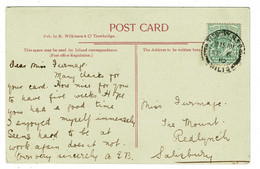 POST CARD
Pub. by R. Wilkinson & Co Trowbridge.
This space may be used for Inland correspondence
(Post Office Regulation.)
The address to be written here.
Dear Miss Durnage.
Many thanks for
your card. How nice for you
to have five weeks. Hope
you had a good time
I enjoyed myself immensely
Seems hard to be at
work again does it not.
Yours very sincerely A. E. B.
Miss Durnage.
The Mount.
Redlynch
Salisbury